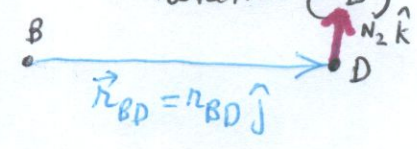 B
N₂ k̂
D
r⃗_BD = r_BD ĵ